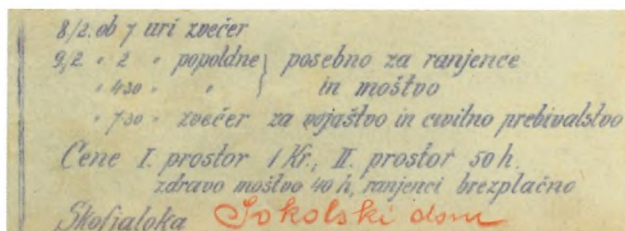 8/2. ob 7 uri zvečer
9/2. " 2 " popoldne } posebno za ranjence
" 4³⁰ " " } in moštvo
" 7³⁰ " zvečer za vojaštvo in civilno prebivalstvo
Cene I. prostor 1 Kr., II. prostor 50 h.
zdravo moštvo 40 h, ranjenci brezplačno
Škofjaloka Sokolski dom